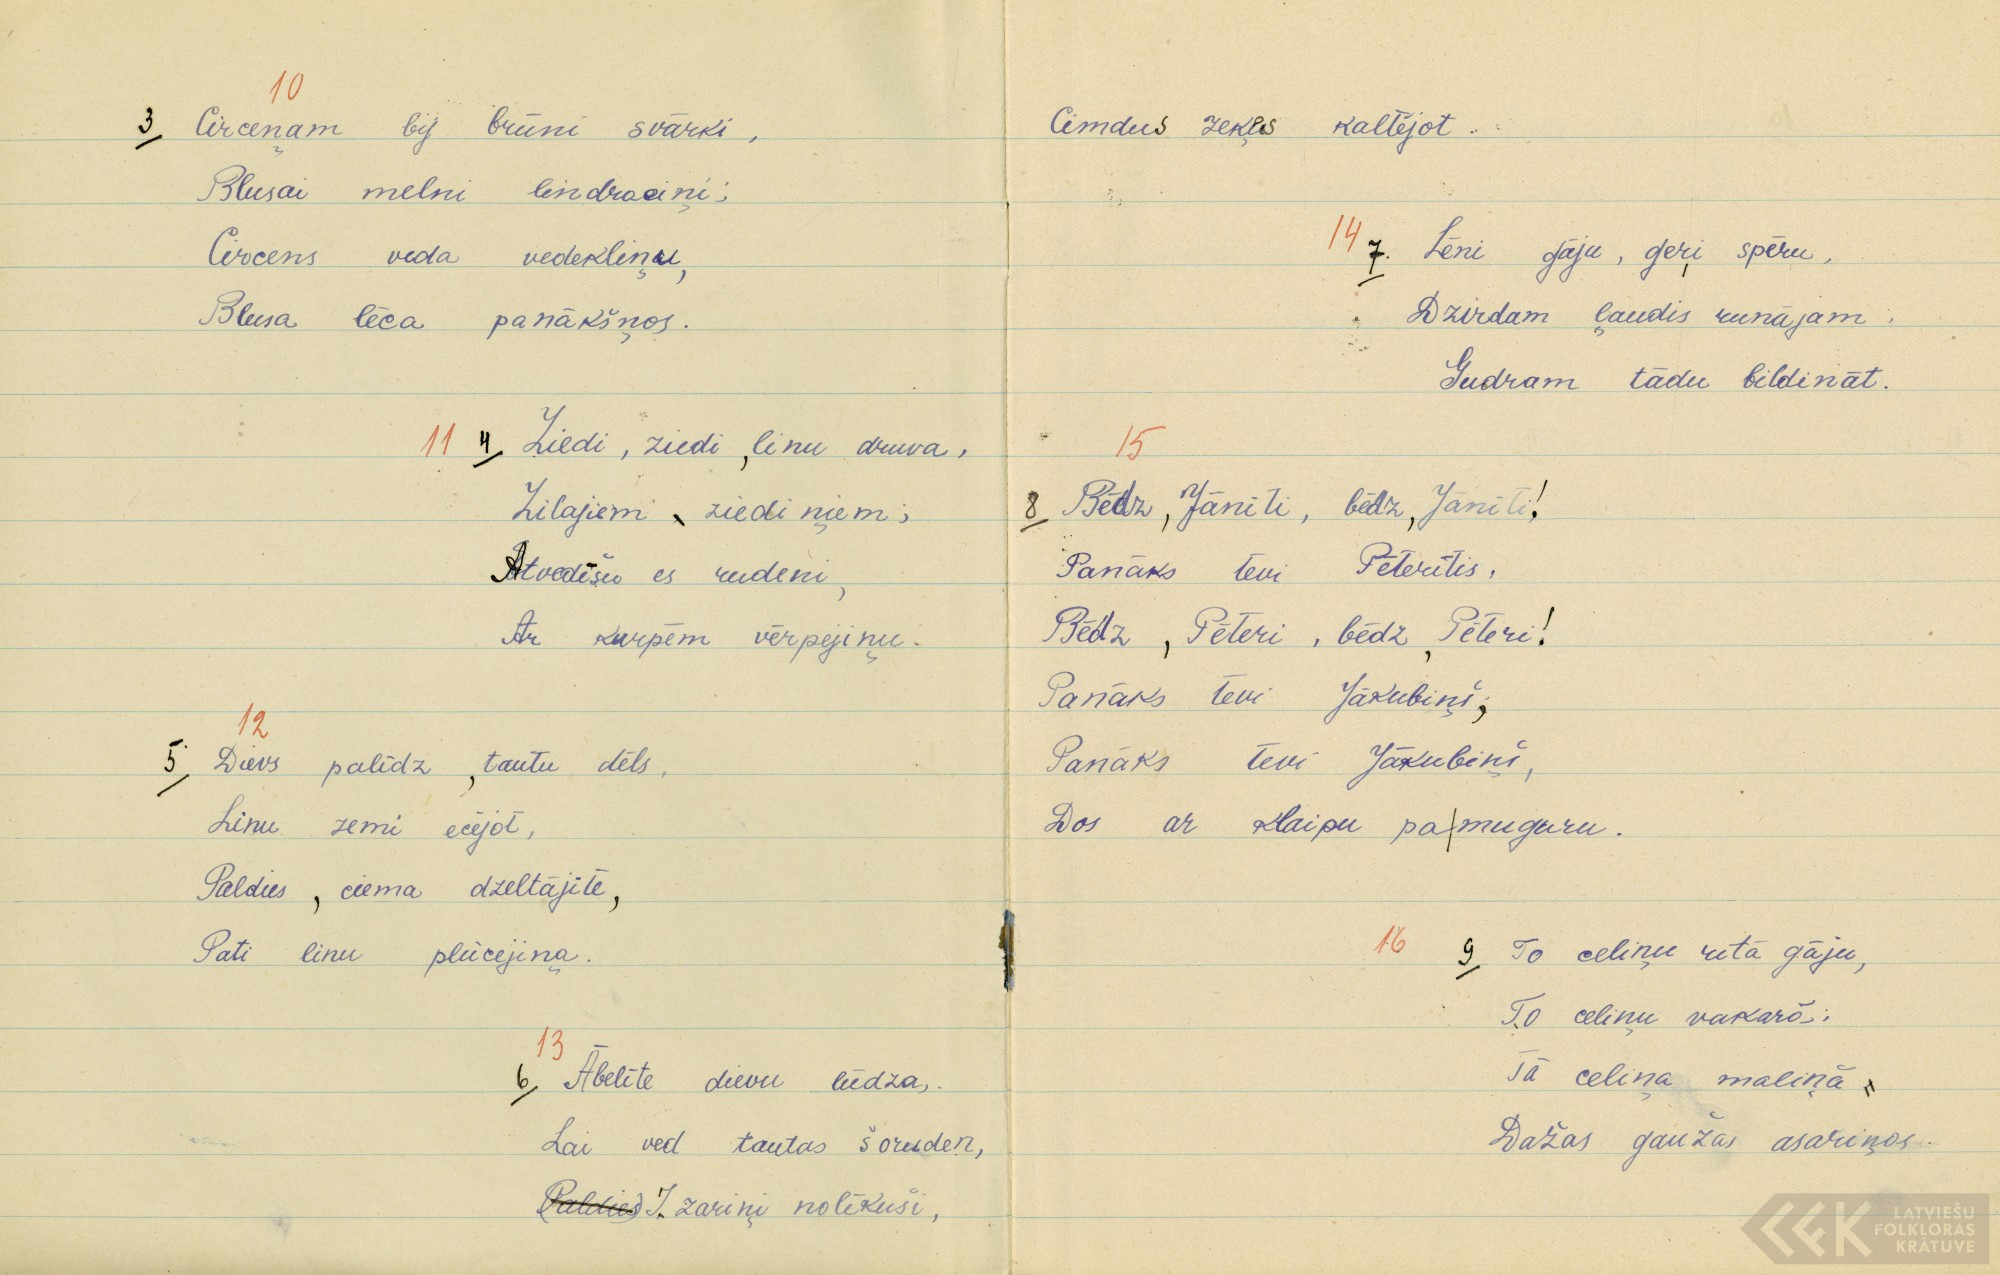 10
3 Circeņam bij brūni svārki,
Blusai melni lindraciņi;
Circens veda vedekliņu,
Blusa lēca panākšņos.
11 4 Ziedi, ziedi, linu druva,
Zilajiem ziediņiem;
Atvedīšu es rudeni,
Ar kurpēm vērpejiņu.
12
5 Dievs palīdz, tautu dēls,
Linu zemi ecējot,
Paldies, ciema dzeltājīte,
Pati linu plūcejiņa.
13
6 Ābelīte dievu lūdza,
Lai ved tautas šoruden,
(Paldies) I zariņi nolīkuši,
Cimdus zeķes kaltējot.
14 7. Lēni gāju, geŗi spēru,
Dzirdam ļaudis runājam.
Gudram tādu bildināt.
15
8 Bēdz, Jānīti, bēdz, Jānīti!
Panāks tevi Pēterītis,
Bēdz, Pēteri, bēdz, Pēteri!
Panāks tevi Jākubiņš;
Panāks tevi Jākubiņš,
Dos ar klaipu pa|muguru.
16 9 To celiņu rītā gāju,
To celiņu vakarā;
Tā celiņa maliņā
Dažas gaužas asariņas.
LATVIEŠU
FOLKLORAS
KRĀTUVE